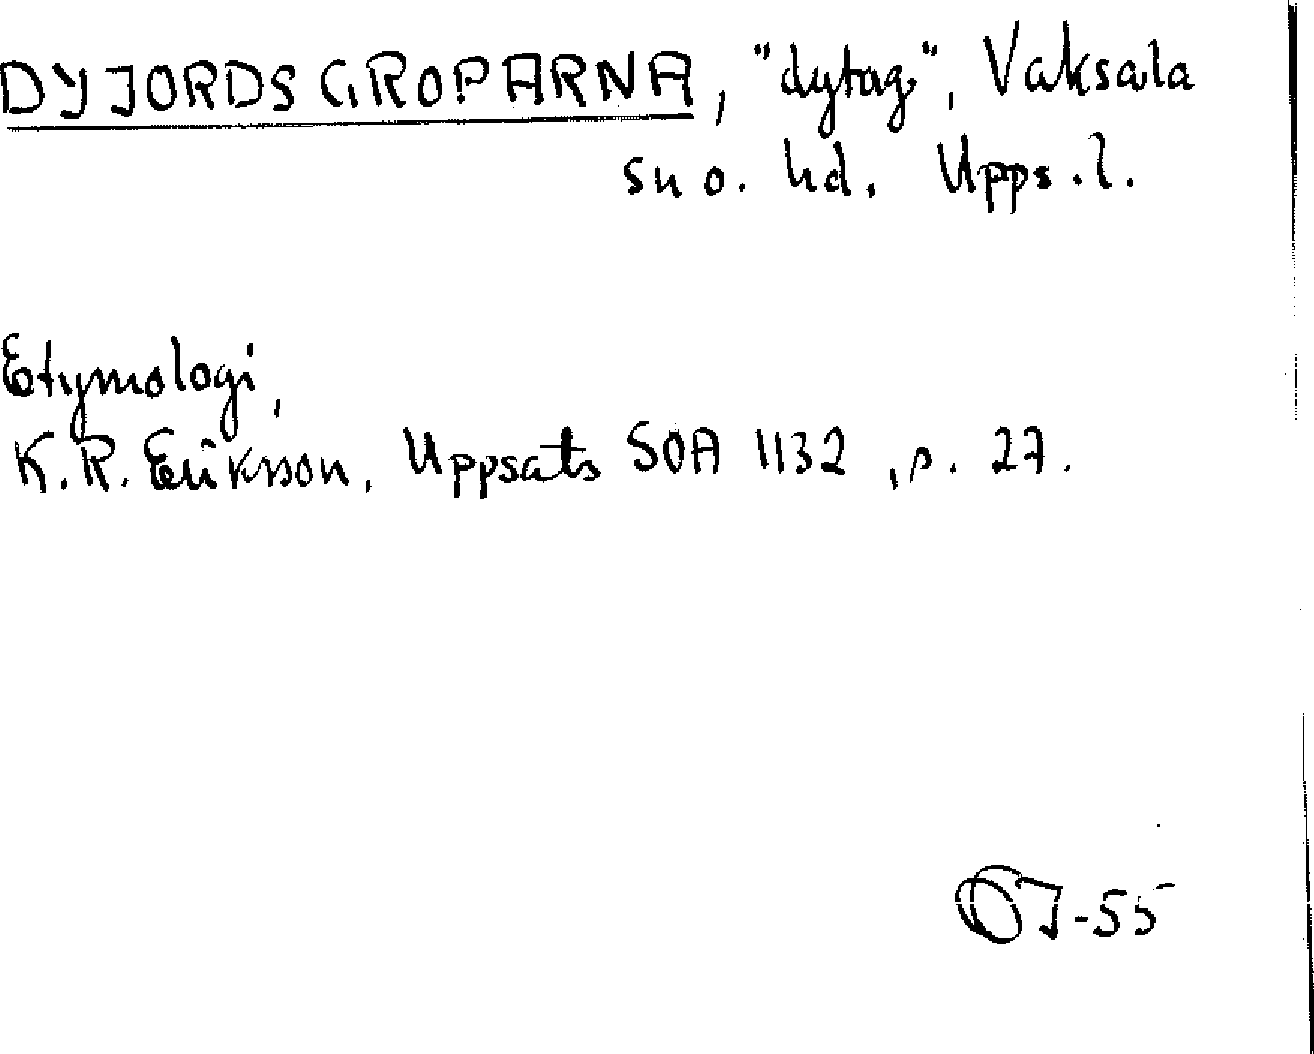 DYJORDSGROPARNA, "dytag", Vaksala
sn o. hd. Upps. l.
Etymologi,
K.R. Eriksson, Uppsats SOA 1132, s. 27.
OJ-55